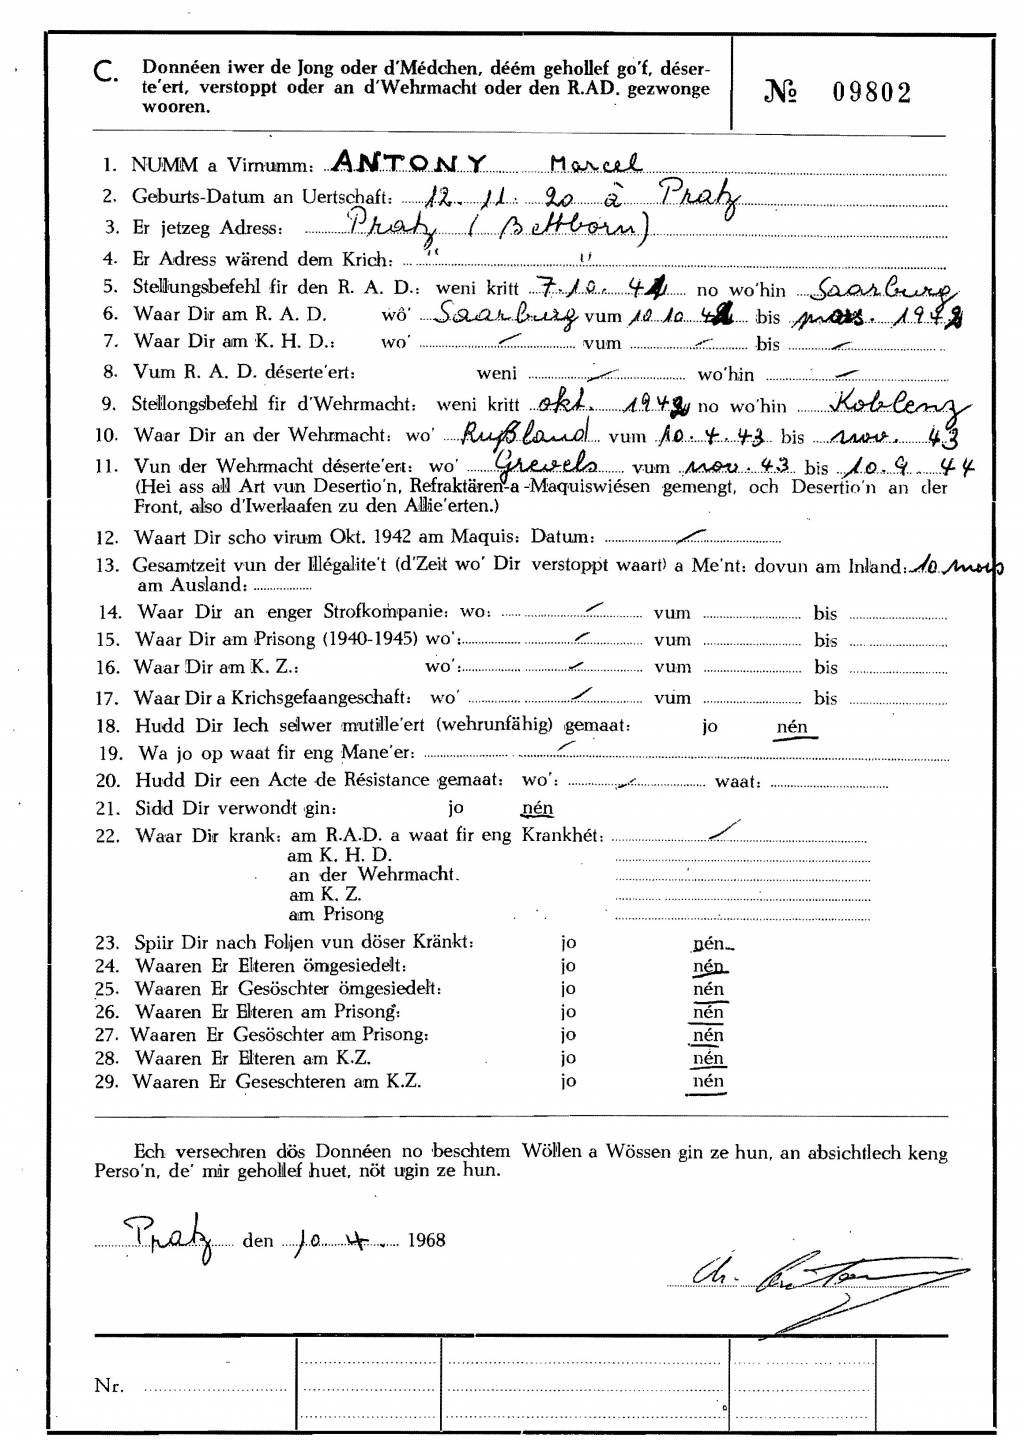 C. Donnéen iwer de Jong oder d'Médchen, déém gehollef go'f, déser-
te'ert, verstoppt oder an d'Wehrmacht oder den R.AD. gezwonge
wooren.
№ 09802
1. NUMM a Virnumm: ANTONY Marcel
2. Geburts-Datum an Uertschaft: 12. 11. 20 à Pratz
3. Er jetzeg Adress: Pratz (Bettborn)
4. Er Adress wärend dem Krich: " "
5. Stellungsbefehl fir den R. A. D.: weni kritt 7. 10. no wo'hin Saarburg
6. Waar Dir am R. A. D. wô' Saarburg vum 10 10 bis mars.
7. Waar Dir am K. H. D.: wo' — vum — bis —
8. Vum R. A. D. déserte'ert: weni — wo'hin —
9. Stellongsbefehl fir d'Wehrmacht: weni kritt okt. no wo'hin Koblenz
10. Waar Dir an der Wehrmacht: wo' Rußland vum 10. 4. 43 bis nov. 43
11. Vun der Wehrmacht déserte'ert: wo' Grevels vum nov. 43 bis 10. 9. 44
(Hei ass all Art vun Desertio'n, Refraktären-a-Maquiswiésen gemengt, och Desertio'n an der
Front, also d'Iwerlaafen zu den Allie'erten.)
12. Waart Dir scho virum Okt. 1942 am Maquis: Datum: —
13. Gesamtzeit vun der Illégalite't (d'Zeit wo' Dir verstoppt waart) a Me'nt: dovun am Inland: 10 mois
am Ausland:
14. Waar Dir an enger Strofkompanie: wo: — vum bis
15. Waar Dir am Prisong (1940-1945) wo': — vum bis
16. Waar Dir am K. Z.: wo': — vum bis
17. Waar Dir a Krichsgefaangeschaft: wo' — vum bis
18. Hudd Dir Iech selwer mutille'ert (wehrunfähig) gemaat: jo nén
19. Wa jo op waat fir eng Mane'er: —
20. Hudd Dir een Acte de Résistance gemaat: wo': — waat:
21. Sidd Dir verwondt gin: jo nén
22. Waar Dir krank: am R.A.D. a waat fir eng Krankhét: —
am K. H. D.
an der Wehrmacht.
am K. Z.
am Prisong
23. Spiir Dir nach Foljen vun döser Kränkt: jo nén
24. Waaren Er Elteren ömgesiedelt: jo nén
25. Waaren Er Gesöschter ömgesiedelt: jo nén
26. Waaren Er Elteren am Prisong: jo nén
27. Waaren Er Gesöschter am Prisong: jo nén
28. Waaren Er Elteren am K.Z. jo nén
29. Waaren Er Geseschteren am K.Z. jo nén
Ech versechren dös Donnéen no beschtem Wöllen a Wössen gin ze hun, an absichtlech keng
Perso'n, de' mir gehollef huet, nöt ugin ze hun.
Pratz den 10. 4. 1968
Nr.